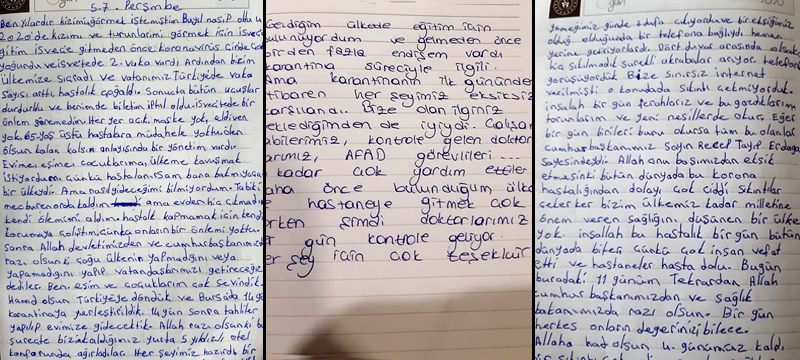 5-7. Perşembe
Ben yıllardır kızımı görmek istemiştim Bu yıl nasip oldu
2020'de kızımı ve torunlarımı görmek için isveç
gitim isveçe gitmeden önce koronavirüs Çinde çok
yoğundu ve isveçte de 2. vaka vardı. Ardından bizim
ülkemize sıçradı ve vatanımız Türkiyede vaka
sayısı arttı hastalık çoğaldı. Sonuçta bütün uçuşlar
durduruldu ve benimde biletim iptal oldu isveçte de bir
önlem göremedim. Her yer açık, maske yok, eldiven
yok. 65 yaş üstü hastalara müdahele yoktu ölen
ölsün kalan kalsın anlayışında bir yönetim vardı.
Evime, eşime, çocuklarıma, ülkeme kavuşmak
istiyordum. Çünkü hastalansam bana bakmıyacak
bir ülkeydi. Ama nasıl gideceğimi bilmiyordum. Tabiki
mecburen orda kaldım ama evden hiç çıkmadım
kendi önlemimi aldım. hastalık kapmamak için kendi
korumaya çalıştım çünkü onların bir önlemi yoktu.
Sonra Allah devletimizden ve cumhurbaşkanımızdan
razı olsunki çoğu ülkenin yapmadığını veya
yapamadığını yapıp vatandaşlarımızı getireceğiz
dediler. Ben, eşim ve çocuklarım çok sevindik.
Hamd olsun Türkiyeye döndük ve Bursada 14 gün
karantinaya yerleştirildik. 14 gün sonra tahliler
yapılıp evimize gidecektik. Allah razı olsunki bu
süreçte bizim kaldığımız yurta 5 yıldızlı otel
konforunda ağırladılar. Her şeyimiz hazırdı bir
Geldiğim ülkede eğitim için
bulunuyordum ve gelmeden önce
birden fazla endişem vardı
karantina süreciyle ilgili.
Ama karantinanın ilk gününden
itibaren her şeyimiz eksiksiz
karşılandı. Bize olan ilginiz
beklediğimden de iyiydi. Çalışan
abilerimiz, kontrole gelen doktor
larımız, AFAD görevlileri...
kadar çok yardım ettiler
daha önce bulunduğum ülke
hastaneye gitmek çok
zorken şimdi doktorlarımız
her gün kontrole geliyor.
Her şey için çok teşekkür
yemeğimiz günde 3 defa çıkıyordu ve bir eksiğimiz
olduğunda bir telefona bağlıydı hemen
yerine getiriyorlardı. Dört duvar arasında olsak
hiç sıkılmadık sürekli akrabalar arıyor telefonla
görüşüyorduk. Bize sınırsız internet
verilmişti o konudada sıkıntı çekmiyorduk.
inşalah bir gün ferahlarız ve bu yazdıklarım
torunlarım ve yeni nesillerde okur. Eğer
bir gün birileri bunu okursa tüm bu olanlar
cumhurbaşkanımız Sayın Recep Tayyip Erdoğan
sayesindeydi Allah onu başımızdan eksik
etmesinki bütün dünyada bu korona
hastalığından dolayı çok ciddi sıkıntılar
çekerken bizim ülkemiz kadar milletine
önem veren sağlığını düşünen bir ülke
yok. inşallah bu hastalık bir gün bütün
dünyada biter çünkü çok insan vefat
etti ve hastaneler hasta dolu. Bugün
buradaki 11 günüm Tekrardan Allah
cumhur başkanımızdan ve sağlık
bakanımızda razı olsun. Bir gün
herkes onların değerinizi bilecek.
Allaha hamd olsun 4 günümüz kaldı